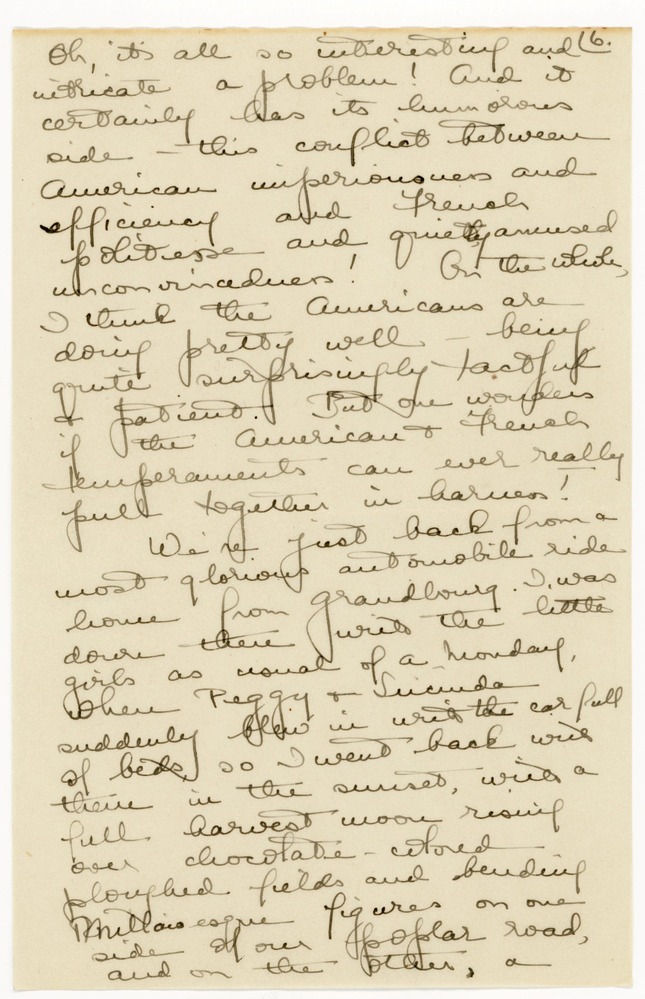 16.
Oh, it's all so interesting and
intricate a problem! And it
certainly has its humorous
side – this conflict between
American imperiousness and
efficiency and French
politesse and quietly amused
unconvincedness! On the whole,
I think the Americans are
doing pretty well – being
quite surprisingly tactful
& patient. But one wonders
if the American & French
temperaments can ever really
pull together in harness!
We're just back from a
most glorious automobile ride
home from Grandbourg. I was
down there with the little
girls as usual of a Monday,
when Peggy & Lucinda
suddenly blew in with the car full
of beds, so I went back with
them in the sunset, with a
full harvest moon rising
over chocolate-colored
ploughed fields and bending
Millaisesque figures on one
side of our poplar road,
and on the other, a